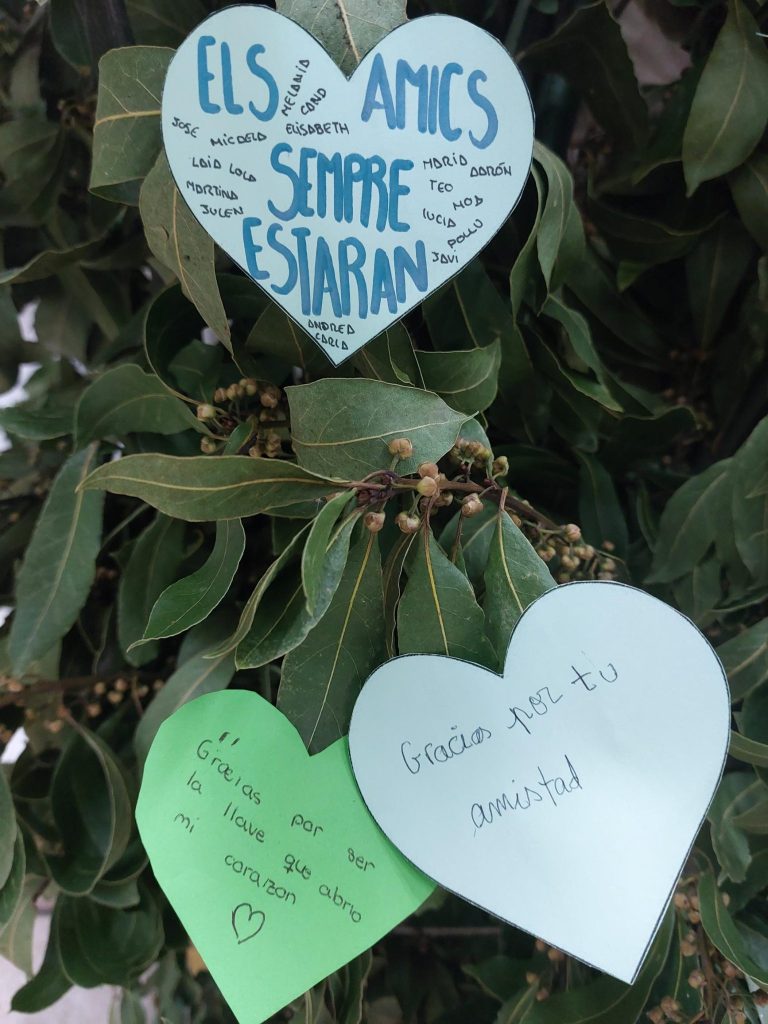 ELS AMICS
SEMPRE
ESTARAN
MELANIA
CAND
ELISABETH
JOSE MICAELA
LAIA LOLA
MARTINA
JULEN
MARIA AARÓN
TEO NOA
LUCIA POLLU
JAVI
ANDREA
CARLA
Gracias por tu
amistad
Gracias por ser
la llave que abrio
mi corazon